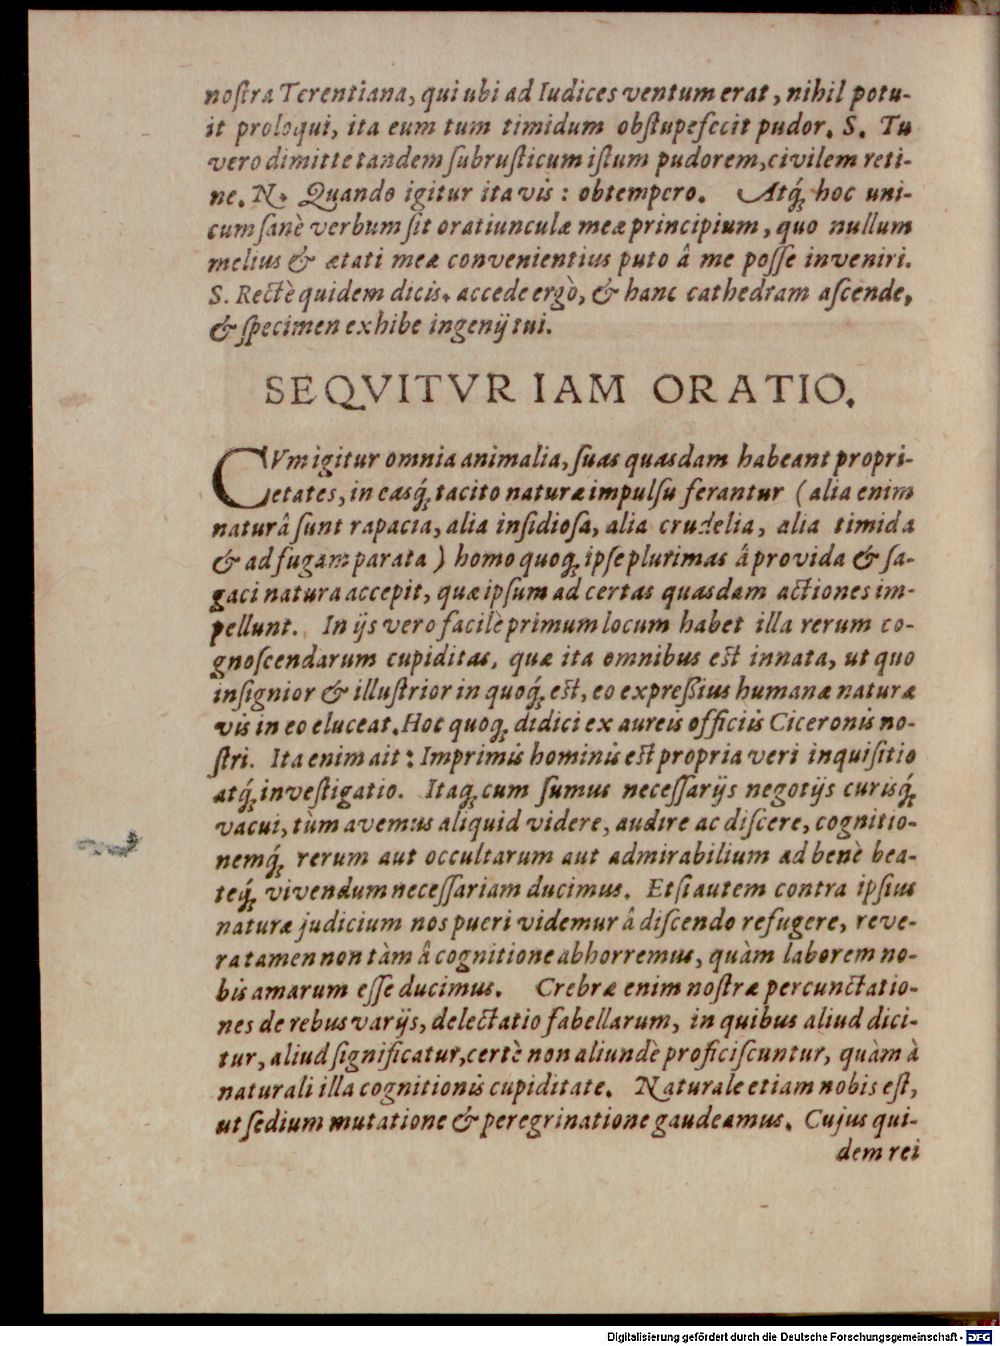 noſtra Terentiana, qui ubi ad Iudices ventum erat, nihil potu-
it proloqui, ita eum tum timidum obſtupefecit pudor. S. Tu
vero dimitte tandem ſubruſticum iſtum pudorem, civilem reti-
ne. N. Quando igitur ita vis : obtempero. Atq́; hoc uni-
cum ſanè verbum ſit oratiunculæ meæ principium, quo nullum
melius & ætati meæ convenientius puto â me poſſe inveniri.
S. Rectè quidem dicis. accede ergò, & hanc cathedram aſcende,
& ſpecimen exhibe ingenij tui.
SEQVITVR IAM ORATIO.
CVm igitur omnia animalia, ſuas quasdam habeant propri-
etates, in easq́; tacito naturæ impulſu ferantur (alia enim
naturâ ſunt rapacia, alia inſidioſa, alia crudelia, alia timida
& ad fugam parata) homo quoq; ipſe plurimas â provida & ſa-
gaci natura accepit, quæ ipſum ad certas quasdam actiones im-
pellunt. In ijs vero facilè primum locum habet illa rerum co-
gnoſcendarum cupiditas, quæ ita omnibus eſt innata, ut quo
inſignior & illuſtrior in quoq́; eſt, eo expreßius humanæ naturæ
vis in eo eluceat. Hoc quoq; didici ex aureis officiis Ciceronis no-
ſtri. Ita enim ait : Imprimis hominis eſt propria veri inquiſitio
atq́; inveſtigatio. Itaq; cum ſumus neceſſarijs negotijs curisq́;
vacui, tùm avemus aliquid videre, audire ac diſcere, cognitio-
nemq́; rerum aut occultarum aut admirabilium ad benè bea-
teq́; vivendum neceſſariam ducimus. Etſi autem contra ipſius
naturæ judicium nos pueri videmur â diſcendo refugere, reve-
ra tamen non tàm â cognitione abhorremus, quàm laborem no-
bis amarum eſſe ducimus. Crebræ enim noſtræ percunctatio-
nes de rebus varijs, delectatio fabellarum, in quibus aliud dici-
tur, aliud ſignificatur, certè non aliundè proficiſcuntur, quàm à
naturali illa cognitionis cupiditate. Naturale etiam nobis eſt,
ut ſedium mutatione & peregrinatione gaudeamus. Cujus qui-
dem rei
Digitalisierung gefördert durch die Deutsche Forschungsgemeinschaft - DFG